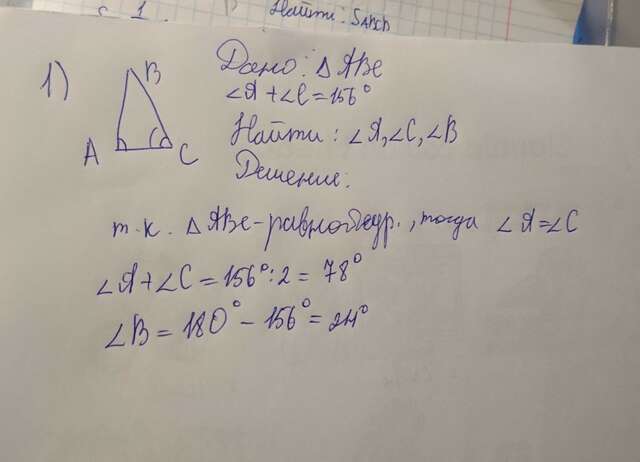 Найти: SABCD
1)
B
A
C
Дано: △ABC
∠A+∠C=156°
Найти: ∠A,∠C,∠B
Решение:
т.к. △ABC-равнобедр., тогда ∠A=∠C
∠A+∠C=156°:2=78°
∠B=180°-156°=24°